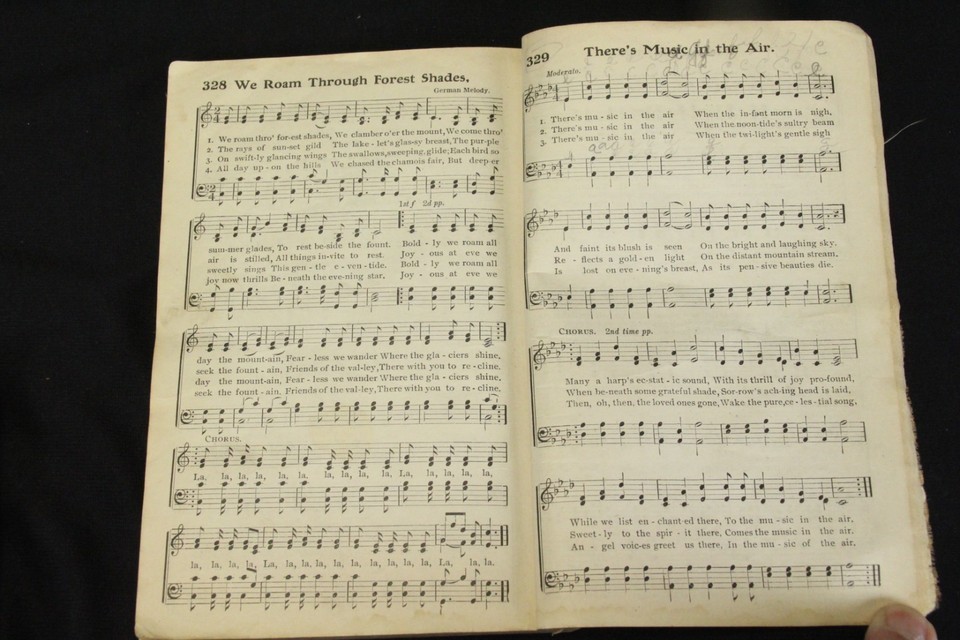 328 We Roam Through Forest Shades.
German Melody.
1. We roam thro' for-est shades, We clamber o'er the mount, We come thro'
2. The rays of sun-set gild The lake - let's glas-sy breast, The pur-ple
3. On swift-ly glancing wings The swallows, sweeping, glide; Each bird so
4. All day up - on the hills We chased the chamois fair, But deep-er
1st f 2d pp.
sum-mer glades, To rest be-side the fount. Bold - ly we roam all
air is stilled, All things in-vite to rest. Joy - ous at eve we
sweetly sings This gen - tle e - ven - tide. Bold - ly we roam all
joy now thrills Be - neath the eve-ning star. Joy - ous at eve we
day the mount-ain, Fear - less we wander Where the gla - ciers shine,
seek the fount - ain, Friends of the val-ley, There with you to re - cline.
day the mount-ain, Fear - less we wander Where the gla - ciers shine,
seek the fount - ain, Friends of the val-ley, There with you to re - cline.
CHORUS.
La, la, la, la, la, la, la, La, la, la, la, la,
la, la, la, la, La, la, la, la, la, la, la, La, la, la.
329 There's Music in the Air.
Moderato.
1. There's mu - sic in the air When the in-fant morn is nigh,
2. There's mu - sic in the air When the noon-tide's sultry beam
3. There's mu - sic in the air When the twi-light's gentle sigh
And faint its blush is seen On the bright and laughing sky.
Re - flects a gold - en light On the distant mountain stream.
Is lost on eve - ning's breast, As its pen - sive beauties die.
CHORUS. 2nd time pp.
Many a harp's ec-stat - ic sound, With its thrill of joy pro-found,
When be-neath some grateful shade, Sor-row's ach-ing head is laid,
Then, oh, then, the loved ones gone, Wake the pure, ce - les - tial song,
While we list en - chant-ed there, To the mu - sic in the air.
Sweet - ly to the spir - it there, Comes the music in the air.
An - gel voic-es greet us there, In the mu - sic of the air.